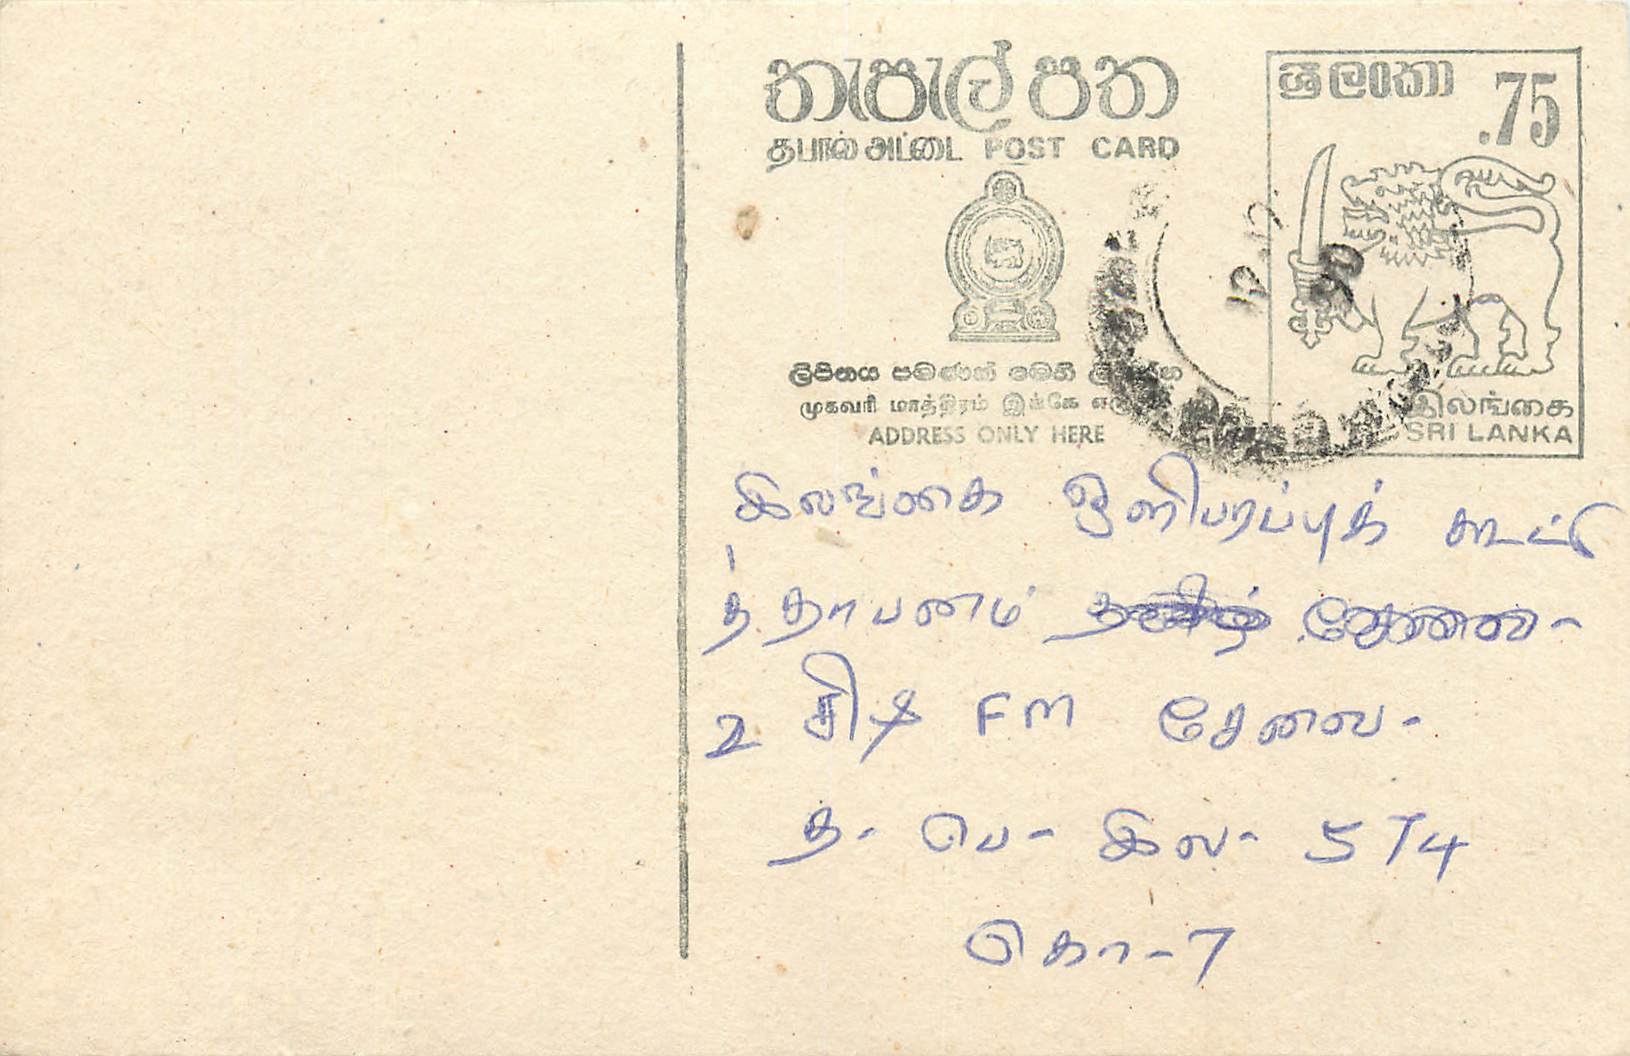 තැපැල් පත
தபால் அட்டை POST CARD
ශ්‍රී ලංකා .75
ලිපිනය පමණක් මෙහි
முகவரி மாத்திரம் இங்கே
ADDRESS ONLY HERE
இலங்கை
SRI LANKA
இலங்கை ஒளிபரப்புக் கூட்டு
த்தாபனம்
2 சிடி FM சேவை-
த- பெ- இல- 574
கொ-7